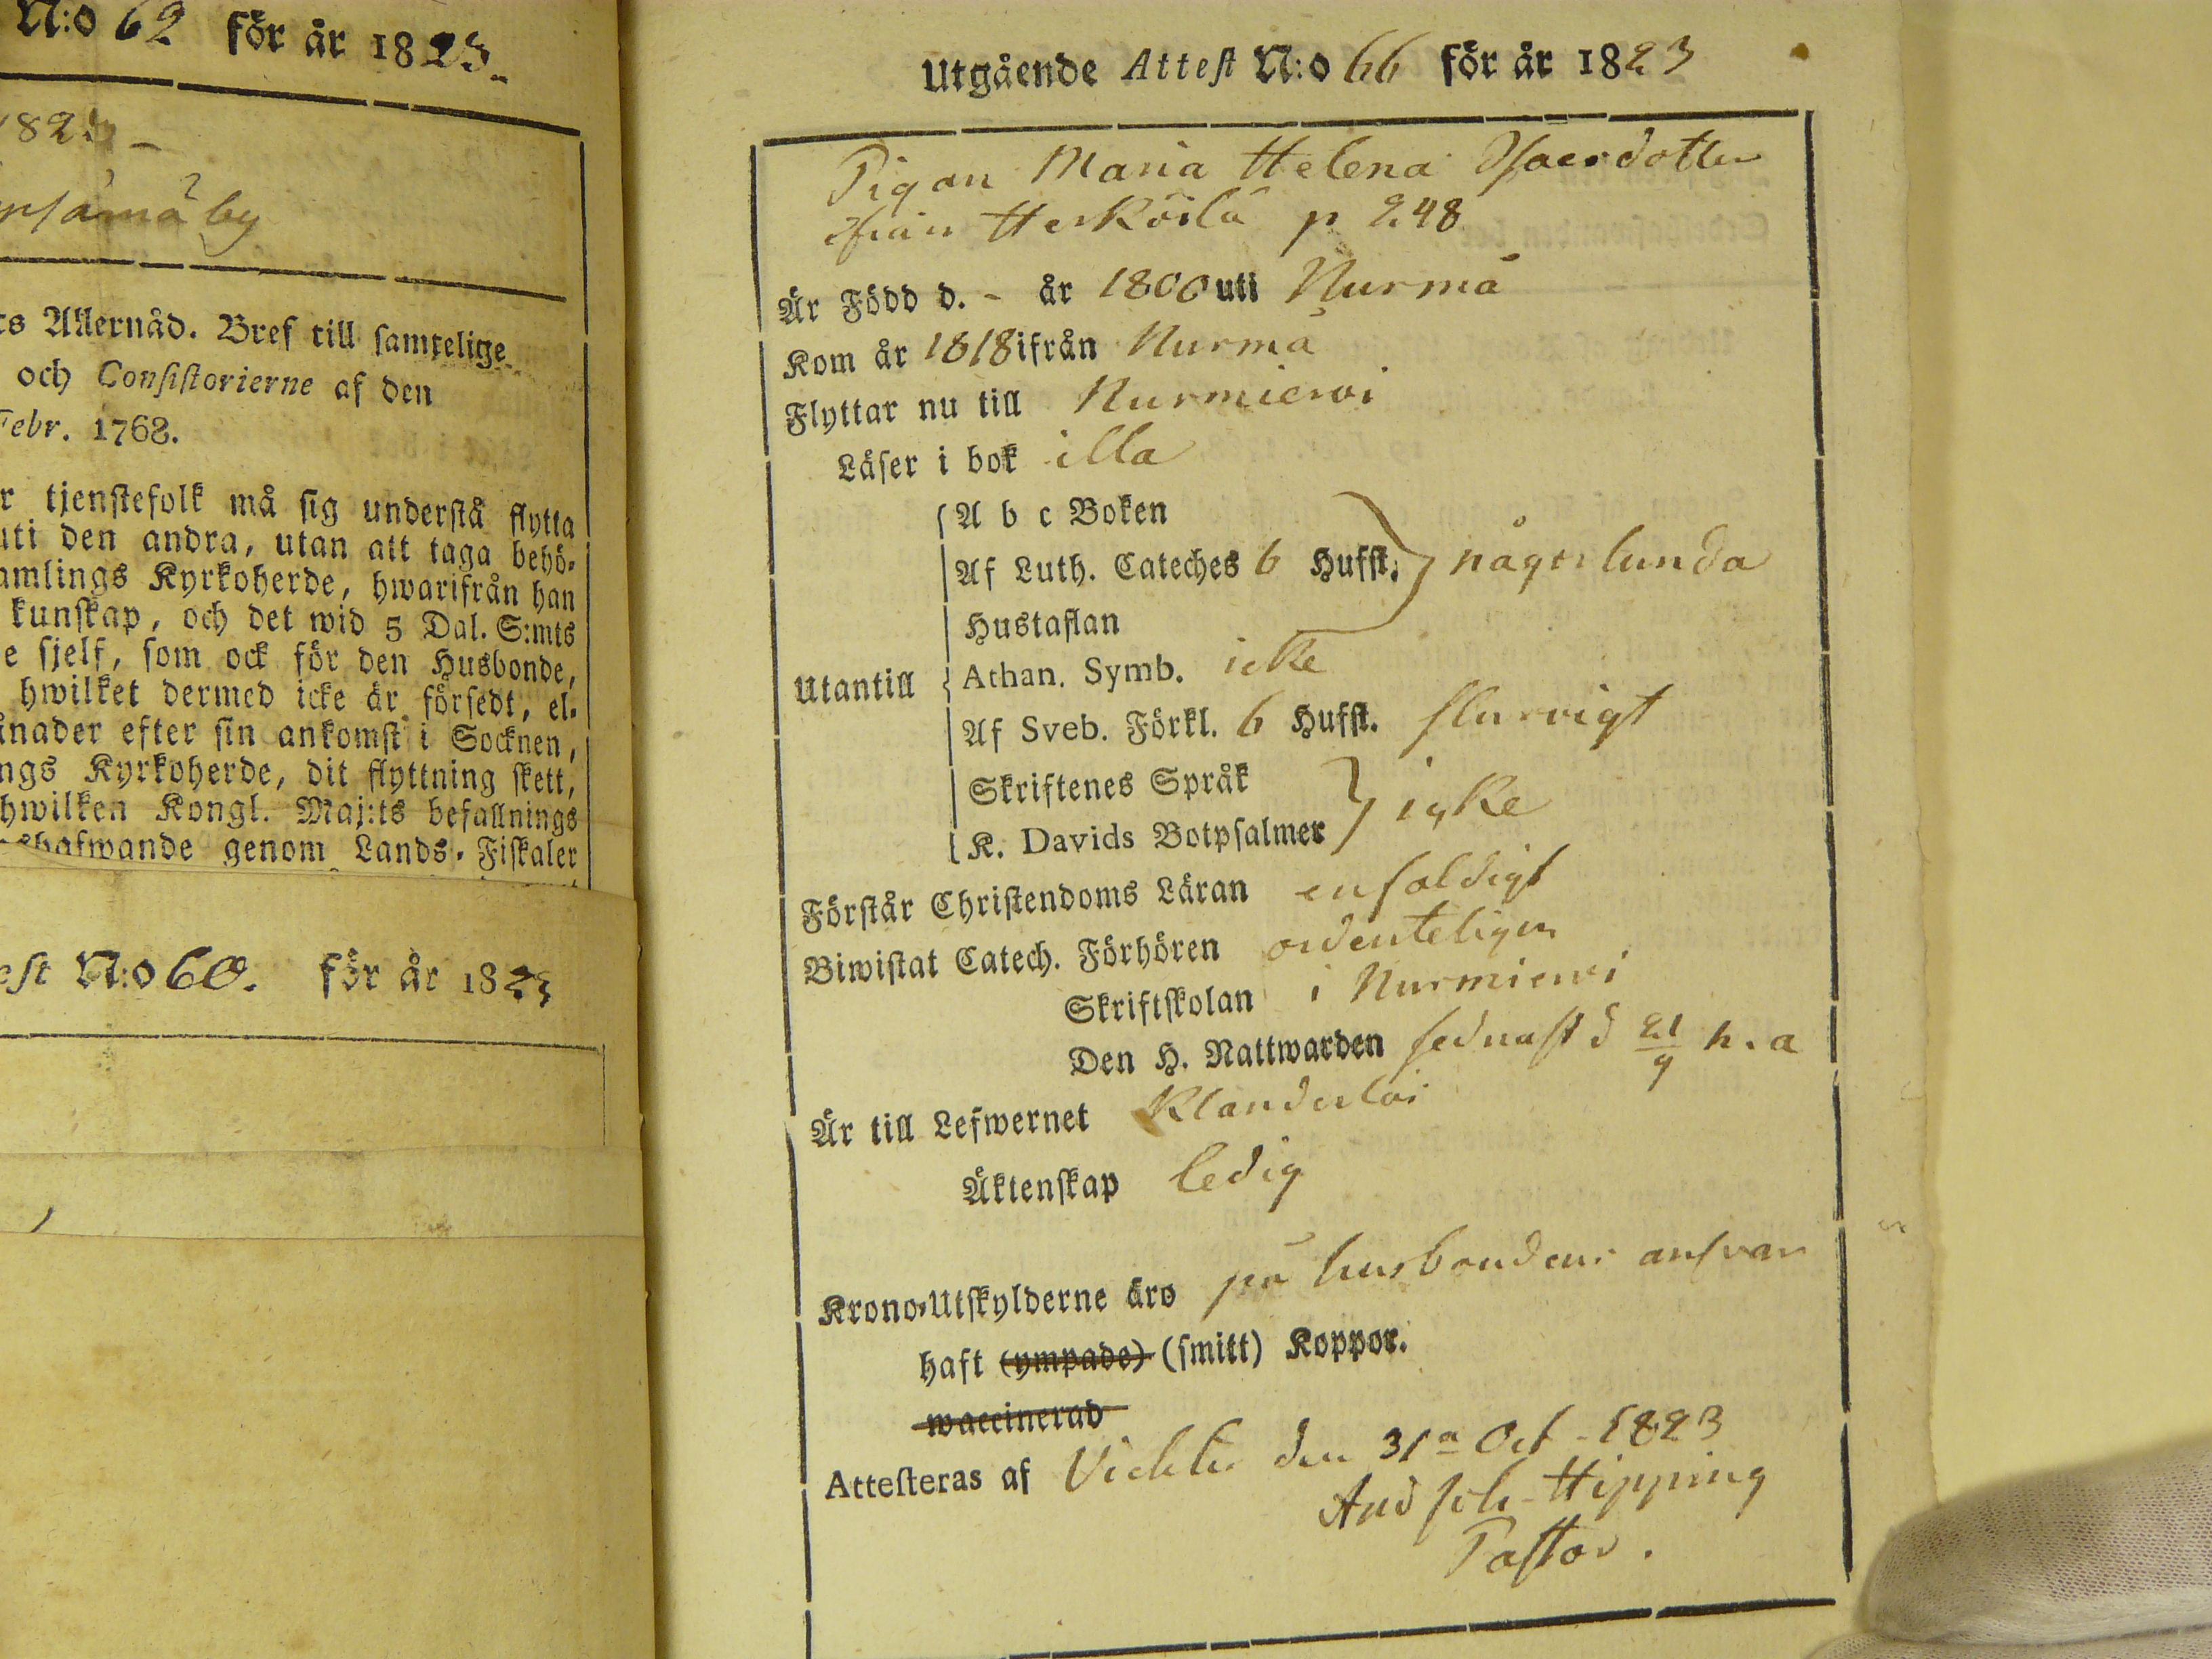 N:o 62 för år 1823.
1823 –
by
ts Allernåd. Bref till samtelige
och Consistorierne af den
Febr. 1768.
r tjenstefolk må sig understå flytta
uti den andra, utan att taga behö-
amlings Kyrkoherde, hwarifrån han
kunskap, och det wid 5 Dal. S:mts
e sjelf, som ock för den Husbonde,
hwilket dermed icke är försedt, el-
ånader efter sin ankomst i Socknen,
ngs Kyrkoherde, dit flyttning skett,
hwilken Kongl. Maj:ts befallnings
shafwande genom Lands-Fiskaler
est N:o 60. för år 1823
Utgående Attest N:o 66 för år 1823
Pigan Maria Helena Isacsdotter
ifrån Herköilä p 248
Är Född d. – år 1800 uti Nurmå
Kom år 1818 ifrån Nurmå
Flyttar nu till Nurmierwi
Läser i bok illa
A b c Boken
Af Luth. Cateches 6 Hufst. någorlunda
Hustaflan
Utantill
Athan. Symb. icke
Af Sveb. Förkl. 6 Hufst. slurvigt
Skriftenes Språk
K. Davids Botpsalmer icke
Förstår Christendoms Läran enfaldigt
Biwistat Catech. Förhören ordenteligen
Skriftskolan i Nurmierwi
Den H. Nattwarden sednast d 21/9 h. a
Är till Lefwernet Klanderlös
Äktenskap ledig
Krono-Utskylderne äro på husbondens answar
haft (ympade) (smitt) Koppor.
waccinerad
Attesteras af Vichtis den 31a Oct 1823
And Joh Hipping
Pastor.